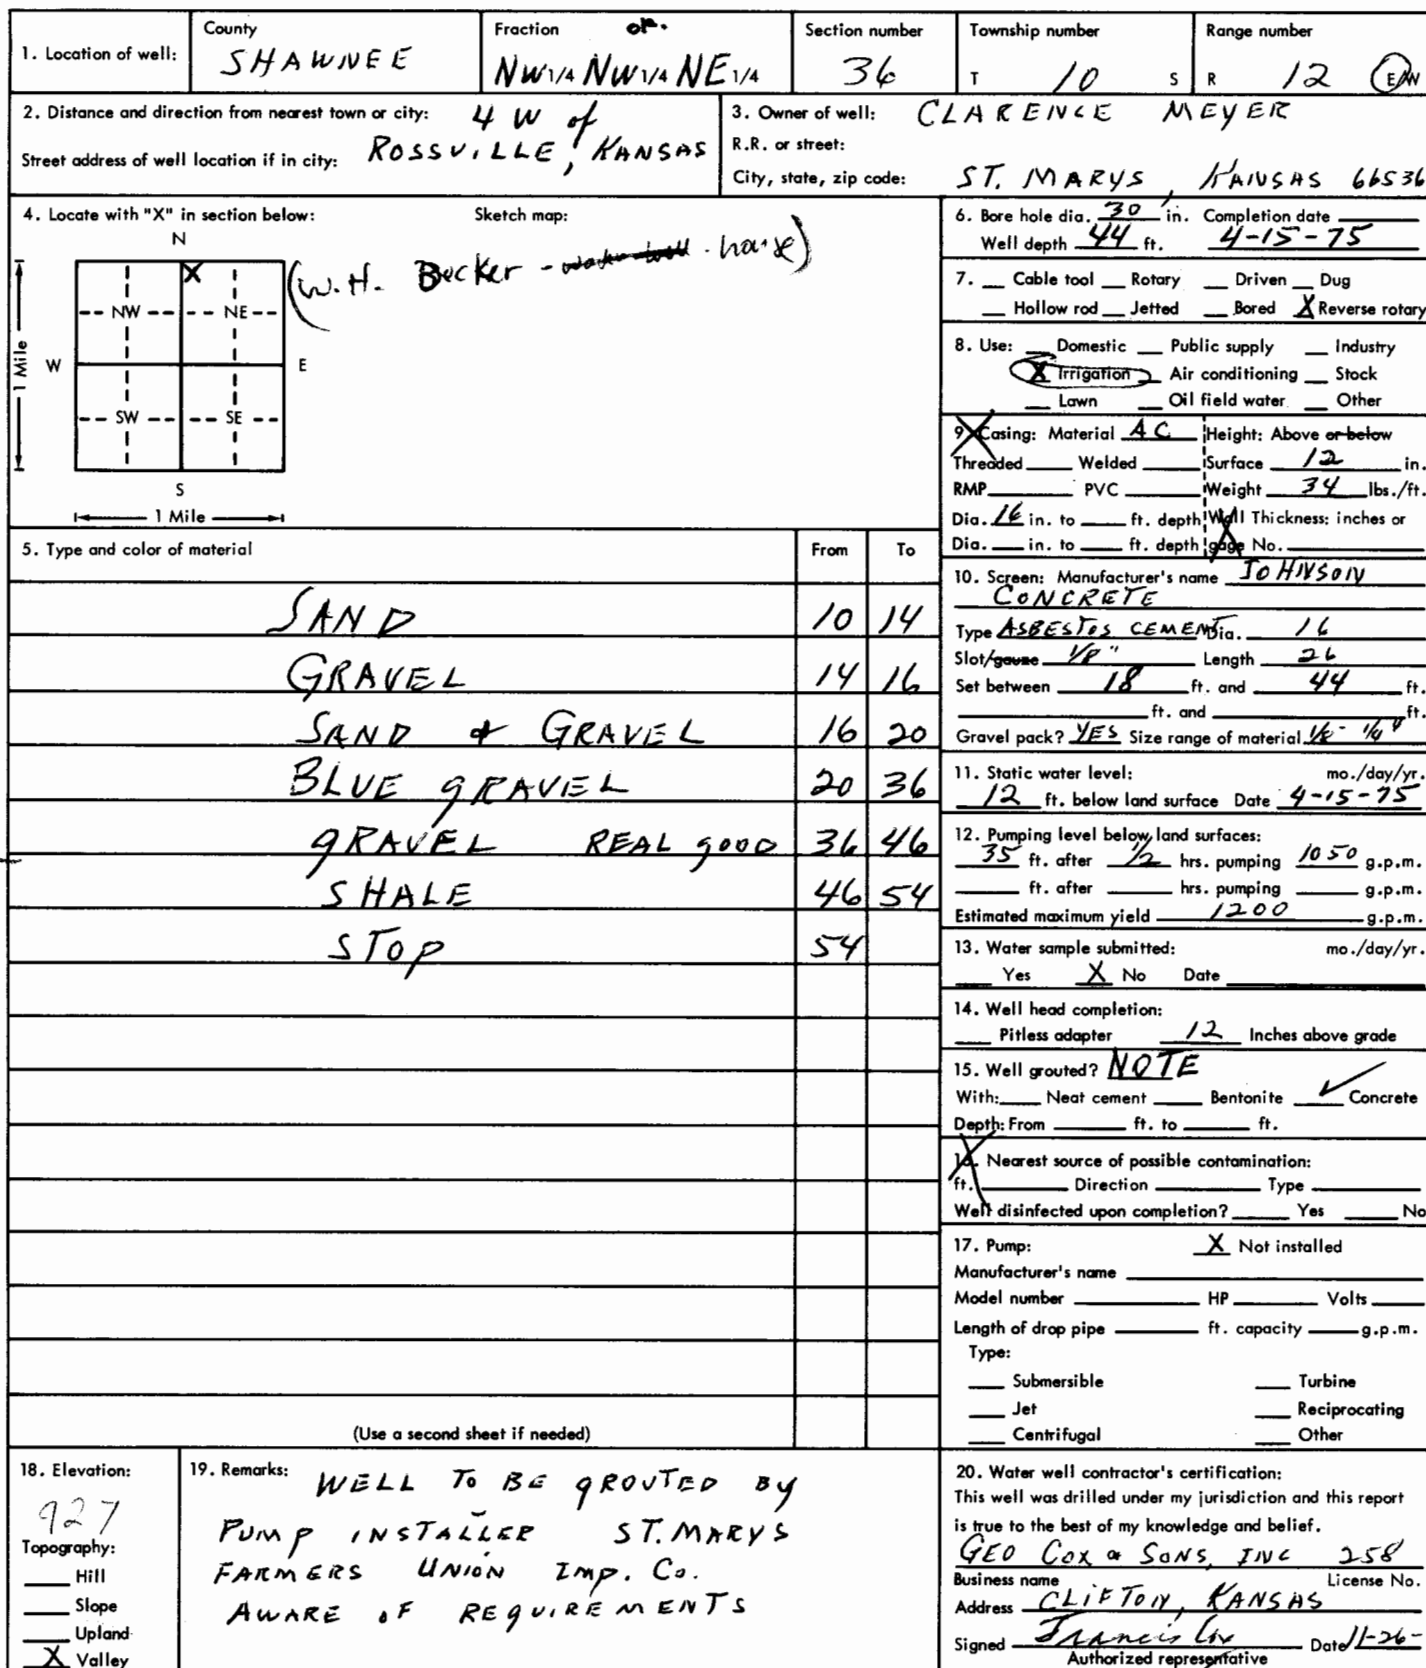 County Fraction or. Section number Township number Range number
1. Location of well: SHAWNEE NW 1/4 NW 1/4 NE 1/4 36 T 10 S R 12 E/W
2. Distance and direction from nearest town or city: 4 W of
Street address of well location if in city: ROSSVILLE, KANSAS
3. Owner of well: CLARENCE MEYER
R.R. or street:
City, state, zip code: ST. MARYS, KANSAS 66536
4. Locate with "X" in section below: Sketch map:
N
X
(W.H. Becker - house)
NW NE
W E
1 Mile
SW SE
S
1 Mile
5. Type and color of material From To
SAND 10 14
GRAVEL 14 16
SAND & GRAVEL 16 20
BLUE GRAVEL 20 36
GRAVEL REAL GOOD 36 46
SHALE 46 54
STOP 54
(Use a second sheet if needed)
6. Bore hole dia. 30 in. Completion date
Well depth 44 ft. 4-15-75
7. Cable tool Rotary Driven Dug
Hollow rod Jetted Bored X Reverse rotary
8. Use: Domestic Public supply Industry
X Irrigation Air conditioning Stock
Lawn Oil field water Other
9. Casing: Material AC Height: Above or below
Threaded Welded Surface 12 in.
RMP PVC Weight 34 lbs./ft.
Dia. 16 in. to ft. depth Wall Thickness: inches or
Dia. in. to ft. depth gage No.
10. Screen: Manufacturer's name JOHNSON
CONCRETE
Type ASBESTOS CEMENT Dia. 16
Slot/gauze 1/8" Length 26
Set between 18 ft. and 44 ft.
ft. and ft.
Gravel pack? YES Size range of material 1/8 - 1/4"
11. Static water level: mo./day/yr.
12 ft. below land surface Date 4-15-75
12. Pumping level below land surfaces:
35 ft. after 1/2 hrs. pumping 1050 g.p.m.
ft. after hrs. pumping g.p.m.
Estimated maximum yield 1200 g.p.m.
13. Water sample submitted: mo./day/yr.
Yes X No Date
14. Well head completion:
Pitless adapter 12 Inches above grade
15. Well grouted? NOTE
With: Neat cement Bentonite ✓ Concrete
Depth: From ft. to ft.
16. Nearest source of possible contamination:
ft. Direction Type
Well disinfected upon completion? Yes No
17. Pump: X Not installed
Manufacturer's name
Model number HP Volts
Length of drop pipe ft. capacity g.p.m.
Type:
Submersible Turbine
Jet Reciprocating
Centrifugal Other
18. Elevation:
927
Topography:
Hill
Slope
Upland
X Valley
19. Remarks: WELL TO BE GROUTED BY
PUMP INSTALLER ST. MARYS
FARMERS UNION IMP. CO.
AWARE OF REQUIREMENTS
20. Water well contractor's certification:
This well was drilled under my jurisdiction and this report
is true to the best of my knowledge and belief.
GEO COX & SONS, INC 258
Business name License No.
Address CLIFTON, KANSAS
Signed Francis Cox Date 11-26-
Authorized representative